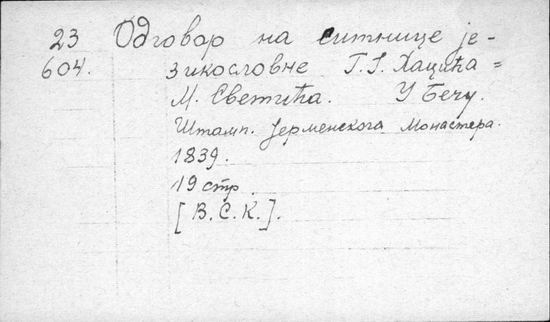 23 Одговор на ситнице је-
604. зикословне Г. Ј. Хаџића =
М. Светића. У Бечу.
Штамп. Јерменскога Монастера.
1839.
19 стр.
[В. С. К.].